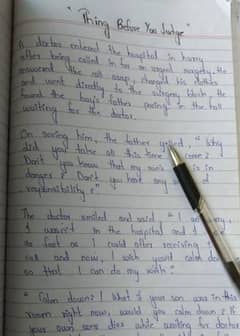 "Thing Before You Judge"
A doctor entered the hospital in hurry
after being called in for an urgent surgery. He
answered the call asap, changed his clothes
and went directly to the surgery block. He
found the boy's father pacing in the hall
waiting for the doctor.
On seeing him, the father yelled, "Why
did you take all this time to come?
Don't you know that my son's is in
danger? Don't you have any of
responsibility?"
The doctor smiled and said, "I am
I wasn't in the hospital and I
as fast as I could after receiving
call and now, I wish you'd calm down
so that I can do my work"
"Calm down! What if your son was in this
room right now, would you calm down? If
your own son dies while waiting for doctor